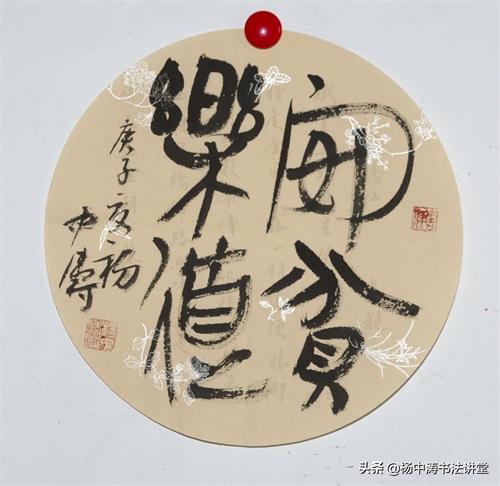 安貧
樂道
庚子夏杨
中濤
头条@杨中涛书法讲堂